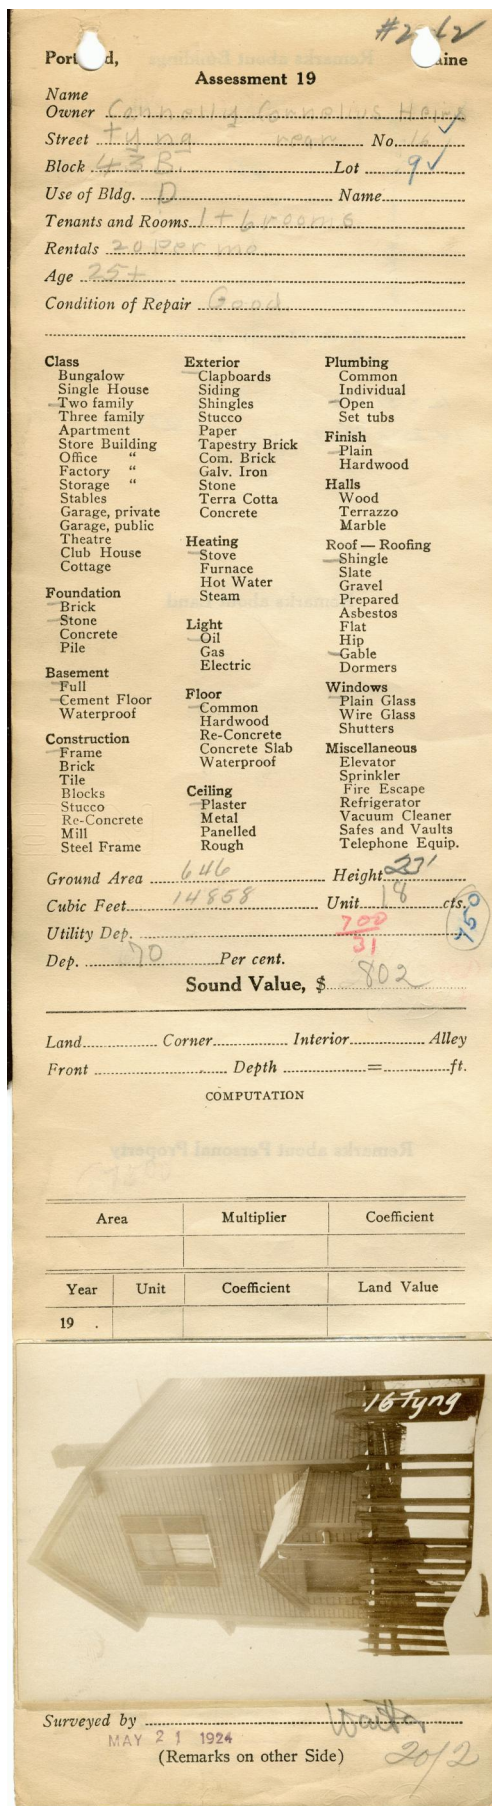 #2
Port d, aine
Assessment 19
Name
Owner Connelly Cornelius Heirs
Street Tyng rear No. 16
Block 43B Lot 9
Use of Bldg. D Name
Tenants and Rooms 1 + 6 rooms
Rentals 20 per mo.
Age 25+
Condition of Repair Good
Class
Bungalow
Single House
Two family
Three family
Apartment
Store Building
Office "
Factory "
Storage "
Stables
Garage, private
Garage, public
Theatre
Club House
Cottage
Foundation
Brick
Stone
Concrete
Pile
Basement
Full
Cement Floor
Waterproof
Construction
Frame
Brick
Tile
Blocks
Stucco
Re-Concrete
Mill
Steel Frame
Exterior
Clapboards
Siding
Shingles
Stucco
Paper
Tapestry Brick
Com. Brick
Galv. Iron
Stone
Terra Cotta
Concrete
Heating
Stove
Furnace
Hot Water
Steam
Light
Oil
Gas
Electric
Floor
Common
Hardwood
Re-Concrete
Concrete Slab
Waterproof
Ceiling
Plaster
Metal
Panelled
Rough
Plumbing
Common
Individual
Open
Set tubs
Finish
Plain
Hardwood
Halls
Wood
Terrazzo
Marble
Roof — Roofing
Shingle
Slate
Gravel
Prepared
Asbestos
Flat
Hip
Gable
Dormers
Windows
Plain Glass
Wire Glass
Shutters
Miscellaneous
Elevator
Sprinkler
Fire Escape
Refrigerator
Vacuum Cleaner
Safes and Vaults
Telephone Equip.
Ground Area 646 Height 23'
Cubic Feet 14858 Unit 18 cts.
750
Utility Dep. 700
31
Dep. 70 Per cent.
Sound Value, $ 802
Land Corner Interior Alley
Front Depth = ft.
COMPUTATION
Remarks about Personal Property
Area Multiplier Coefficient
Year Unit Coefficient Land Value
19 .
16 Tyng
Surveyed by
MAY 21 1924
(Remarks on other Side)